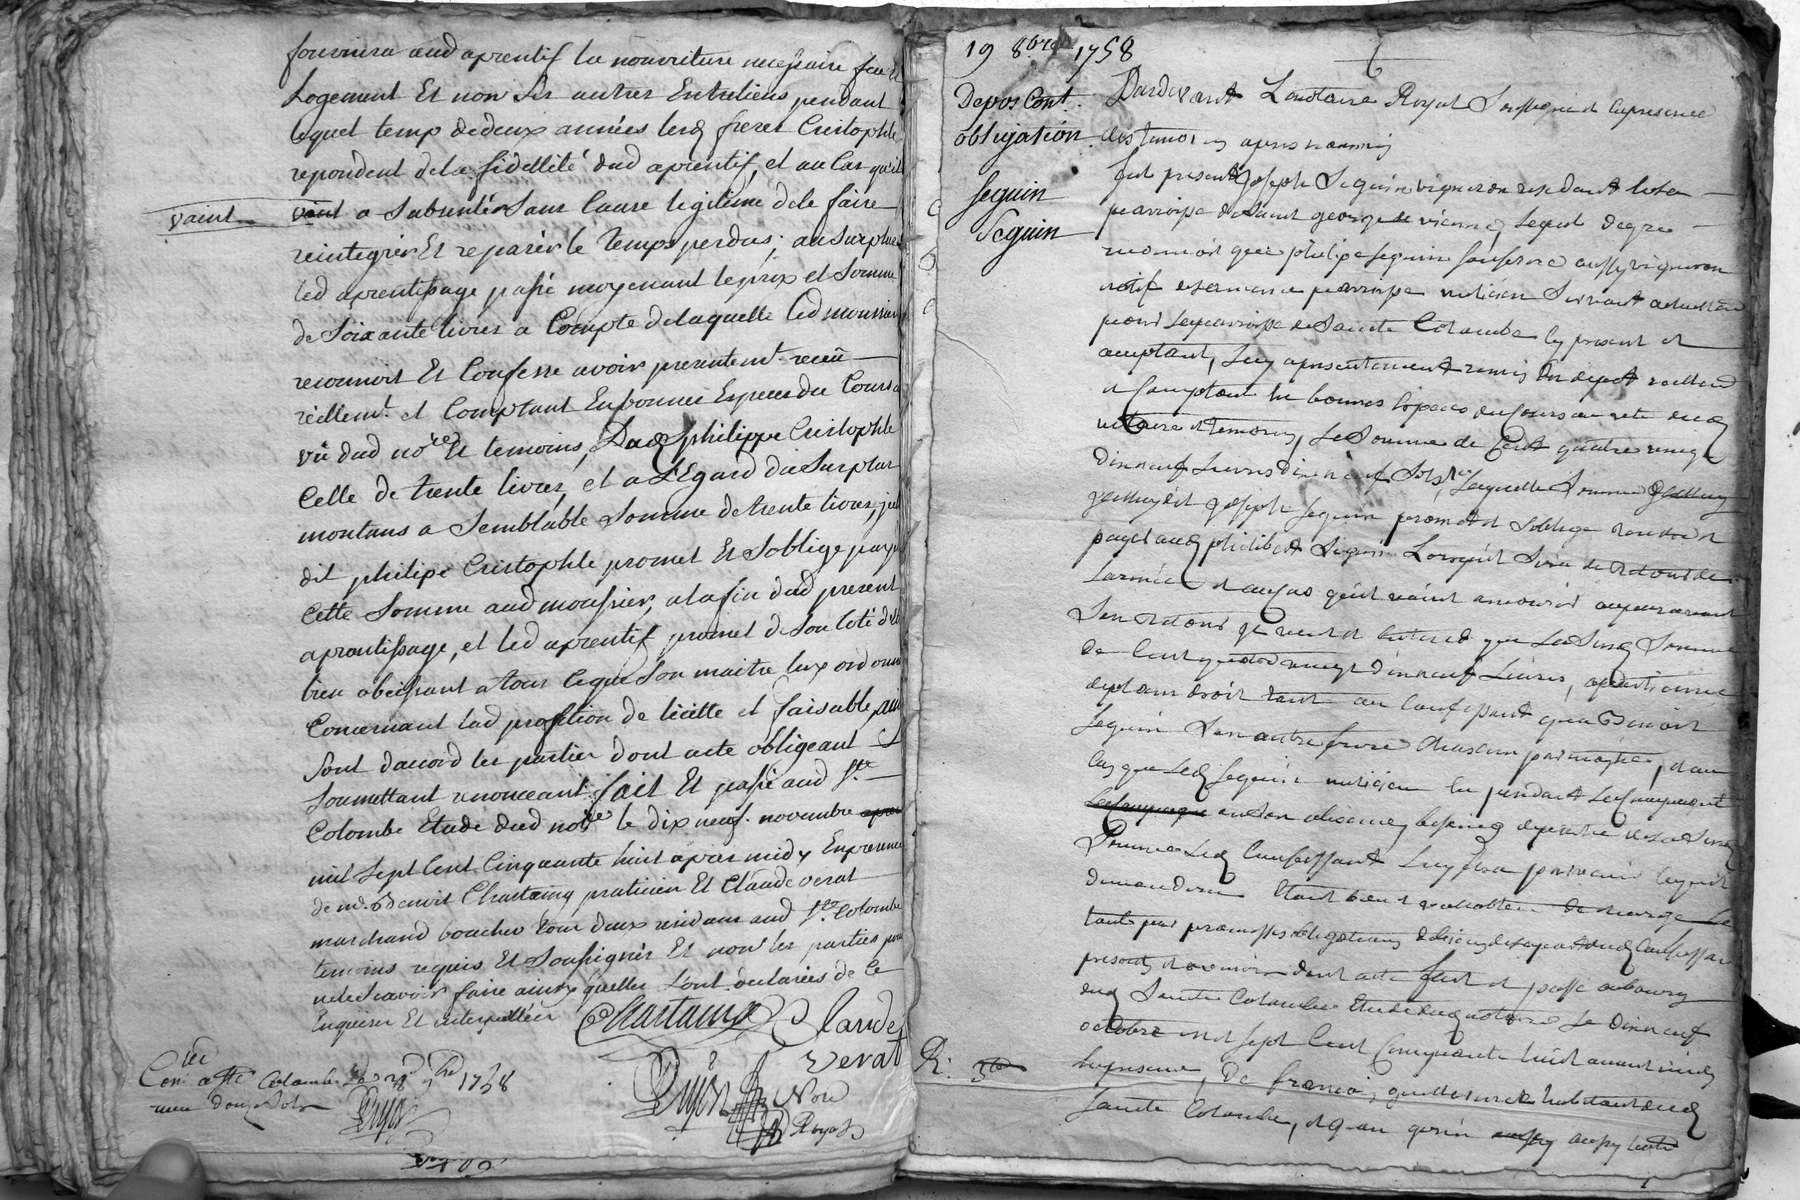 fournira aud aprentif la nourriture necessaire feu et
Logement Et non les autres Entreliens pendant
lequel temp de deux années lesd freres Cristophle
repondent de la fidellité dud aprentif, et au Cas qu'il
vaint
vaint a Sabsenter Sans Cause legitime de le faire
reintegrer Et reparer le temp perdus; au Surplus
led aprentissage passé moyenant le prix et Somme
de Soixante livres a Compte de laquelle Led mousnier
reconnoit Et Confesse avoir presentemt. receu
réellemt. et Comptant En bonnes Especes du Cours a
vüe dud nore et temoins, Dud philippe Cristophle
Celle de trente livres, et a L'Egard du Surplus
montans a Semblable Somme de trente livres, led
dit philipe Cristophle promet Et S'oblige payer
Cette Somme aud mousnier, a la fin dud present
aprentissage, et led aprentif promet de Son Coté d'etre
bien obeissant a tous Ce que Son maitre lux ordonnera
Concernant lad profetion de licitte et faisable, ainsi
Sont d'accord les parties dont acte obligeant
Soumettant renonceant fait Et passé aud Ste
Colombe Etude dud nore le dix neuf. novembre
mil Sept Cent Cinquante huit apres midy En presence
de me. Benoit Chastaing praticien Et Claude verat
marchand boucher tous deux residans aud Ste. Colombe
temoins requis Et Soussignés Et non les parties pour
ne le Scavoir faire ainsy qu'elles L'ont declarées de Ce
Enquises Et interpellées Chastaing Claude
verat
Dujon Nore
Royal
Con. a Ste Colombe Le 28 9bre 1758
reçu douze sols
Dujon
19 8bre 1758
Depos Cont.
obligation
Seguin
Seguin
Pardevant Le notaire Royal Soussigné et en presence
des temoins apres nommés
fut present Joseph Seguin vigneron residant lest en
parroisse de Saint george de vienne, lequel de gré
reconnoit que philipe Seguin Son frere aussy vigneron
natif de parroisse milicien Servant actuellemt
pour la parroisse de Sainte Colombe Cy present et
acceptant, Luy a presentement remis En depost reellemt
et Comptant En bonnes Especes du Cours au veüe dud
notaire et temoins, La Somme de Cent quatre vingt
dixneuf Livres dixneuf Sols, Laquelle Somme
Joseph Seguin promet et S'oblige rendre et
payer aud philibert Seguin Lorsquil Sera de Retour de
Larmée et au Cas quil vaint a mourir auparavant
Son retour Il veut et Entend que Lad Susd Somme
de Cent quatre vingt dixneuf Livres, apartienne
de plain droit tant au Confessant qua Benoit
Seguin Son autre frere Chacun par moytié, et au
Cas que led Seguin milicien
en Son absence, besoin de partie de lad Susd
Somme Led Confessant Luy fera parvenir Ce quil
demandera
toutes par promesses obligations
presents et avenir dont acte fait et passé au bourg
dud Sainte Colombe Etude du notaire Le dixneuf
octobre mil sept Cent Cinquante huit avant midy
En presence, De francois habitant dud
Sainte Colombe, et Jean aussy
R: